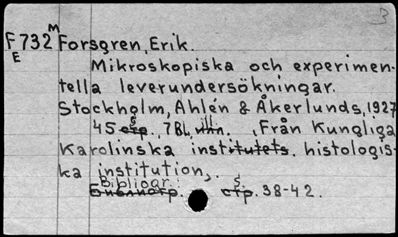 3
M
F732 Forsgren, Erik.
E
Mikroskopiska och experimen-
tella leverundersökningar.
Stockholm, Ahlén & Åkerlunds, 1927
45 s. стр. 7 Bl. илл. , (Från Kungliga
Karolinska institutets. histologis-
ka institution,.
Bibliogr.:
Библиогр. s. стр. 38-42.